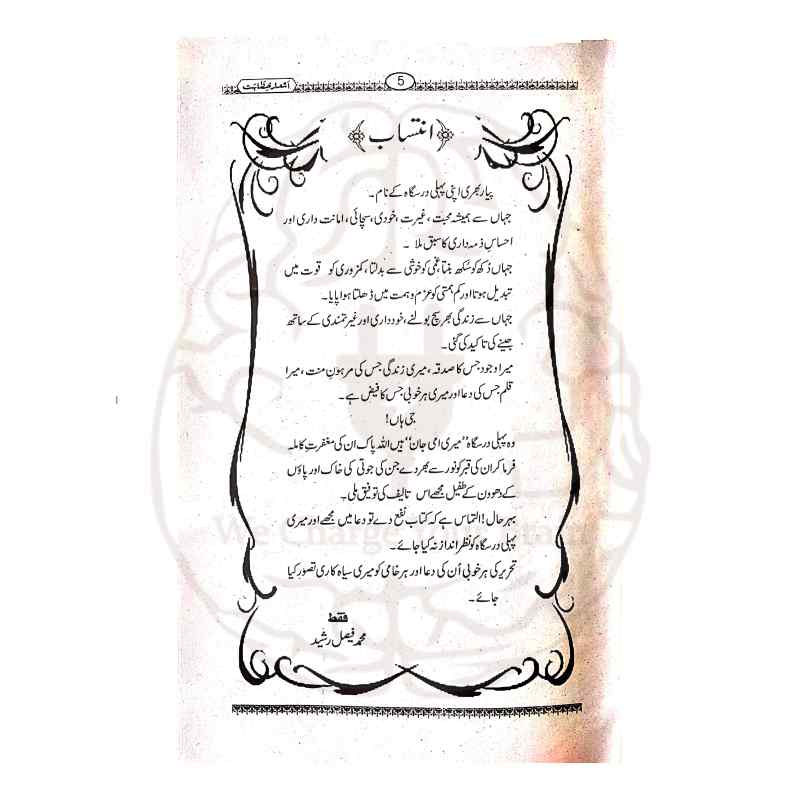 5
انتساب
پیار بھری اپنی پہلی درسگاہ کے نام۔
جہاں سے ہمیشہ محبت، غیرت، خودی، سچائی، امانت داری اور
احساسِ ذمہ داری کا سبق ملا ۔
جہاں دُکھ کو سُکھ بنتا، غمی کو خوشی سے بدلتا، کمزوری کو قوت میں
تبدیل ہوتا اور کم ہمتی کو عزم و ہمت میں ڈھلتا ہوا پایا۔
جہاں سے زندگی بھر سچ بولنے، خودداری اور غیرتمندی کے ساتھ
جینے کی تاکید کی گئی۔
میرا وجود جس کا صدقہ، میری زندگی جس کی مرہونِ منت، میرا
قلم جس کی دعا اور میری ہر خوبی جس کا فیض ہے۔
جی ہاں!
وہ پہلی درسگاہ ”میری امی جان“ ہیں اللہ پاک ان کی مغفرتِ کاملہ
فرما کر ان کی قبر کو نور سے بھر دے جن کی جوتی کی خاک اور پاؤں
کے دھوون کے طفیل مجھے اس تالیف کی توفیق ملی۔
بہر حال! التماس ہے کہ کتاب نفع دے تو دعا میں مجھے اور میری
پہلی درسگاہ کو نظر انداز نہ کیا جائے۔
تحریر کی ہر خوبی اُن کی دعا اور ہر خامی کو میری سیاہ کاری تصور کیا
جائے۔
فقط
محمد فیصل رشید
We Charge